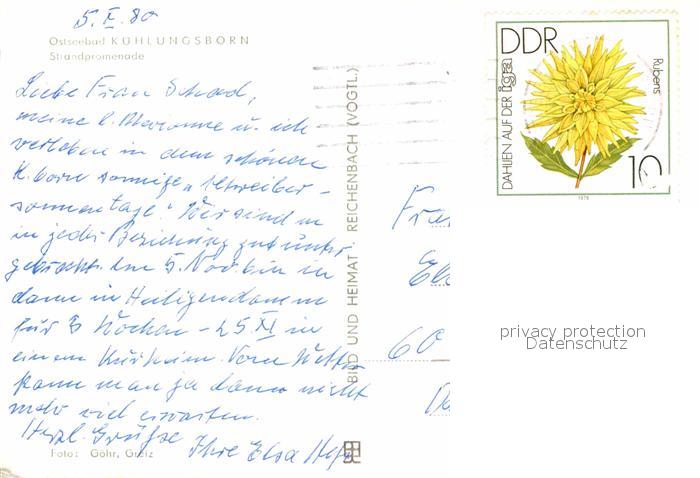 5. X. 80
Ostseebad KÜHLUNGSBORN
Strandpromenade
Liebe Frau Schad,
meine l. Marianne u. ich
verleben in dem schönen
K.born sonnige „Altweiber-
sommertage“. Wir sind
in jeder Beziehung gut unter
gebracht. Am 5. Nov. bin ich
dann in Heiligendamm
für 3 Wochen – 25 XI in
einem Kurheim. Vom Wetter
kann man ja dann nicht
mehr viel erwarten.
Herzl. Grüße
Ihre Elsa
Foto: Göhr, Greiz
BILD UND HEIMAT REICHENBACH (VOGTL.)
DDR
DAHLIEN AUF DER
Rubens
10
1979
Fra
60
privacy protection
Datenschutz